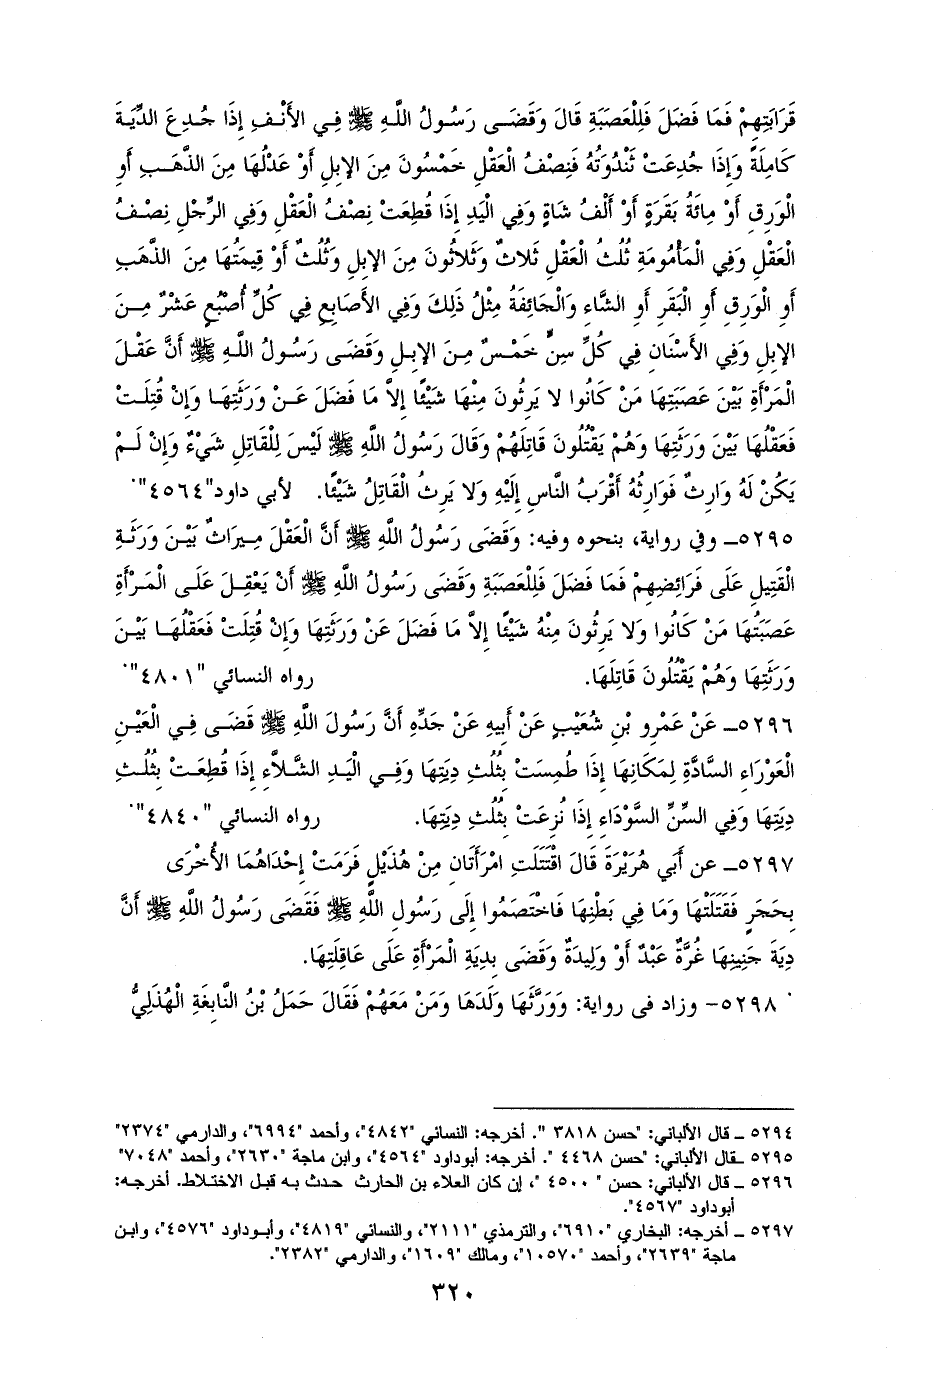 قَرَابَتِهِمْ فَمَا فَضَلَ فَلِلْعَصَبَةِ قَالَ وَقَضَــى رَسُــولُ اللَّـهِ ﷺ فِـي الأَنْـفِ إِذَا جُـدِعَ الدِّيَـةَ
كَامِلَةً وَإِذَا جُدِعَتْ ثَنْدُوَتُهُ فَنِصْفُ الْعَقْلِ خَمْسُونَ مِنَ الإِبِلِ أَوْ عَدْلُهَا مِنَ الذَّهَـبِ أَوِ
الْوَرِقِ أَوْ مِائَةُ بَقَرَةٍ أَوْ أَلْفُ شَاةٍ وَفِي الْيَدِ إِذَا قُطِعَتْ نِصْفُ الْعَقْلِ وَفِي الرِّجْلِ نِصْـفُ
الْعَقْلِ وَفِي الْمَأْمُومَةِ ثُلُثُ الْعَقْلِ ثَلَاثٌ وَثَلَاثُونَ مِنَ الإِبِلِ وَثُلُثٌ أَوْ قِيمَتُهَا مِنَ الذَّهَبِ
أَوِ الْوَرِقِ أَوِ الْبَقَرِ أَوِ الشَّاءِ وَالْجَائِفَةُ مِثْلُ ذَلِكَ وَفِي الأَصَابِعِ فِي كُلِّ أُصْبُعٍ عَشْرٌ مِـنَ
الإِبِلِ وَفِي الأَسْنَانِ فِي كُلِّ سِنٍّ خَمْـسٌ مِـنَ الإِبِـلِ وَقَضَـى رَسُولُ اللَّـهِ ﷺ أَنَّ عَقْـلَ
الْمَرْأَةِ بَيْنَ عَصَبَتِهَا مَنْ كَانُوا لا يَرِثُونَ مِنْهَا شَيْئًا إِلاَّ مَا فَضَلَ عَـنْ وَرَثَتِهَـا وَإِنْ قُتِلَـتْ
فَعَقْلُهَا بَيْنَ وَرَثَتِهَا وَهُمْ يَقْتُلُونَ قَاتِلَهُمْ وَقَالَ رَسُولُ اللَّهِ ﷺ لَيْسَ لِلْقَاتِلِ شَيْءٌ وَإِنْ لَـمْ
يَكُنْ لَهُ وَارِثٌ فَوَارِثُهُ أَقْرَبُ النَّاسِ إِلَيْهِ وَلا يَرِثُ الْقَاتِلُ شَيْئًا. لأبي داود"٤٥٦٤".
٥٢٩٥ـ وفي رواية، بنحوه وفيه: وَقَضَى رَسُولُ اللَّهِ ﷺ أَنَّ الْعَقْلَ مِـيرَاثٌ بَيْـنَ وَرَثَـةِ
الْقَتِيلِ عَلَى فَرَائِضِهِمْ فَمَا فَضَلَ فَلِلْعَصَبَةِ وَقَضَى رَسُولُ اللَّهِ ﷺ أَنْ يَعْقِـلَ عَلَـى الْمَـرْأَةِ
عَصَبَتُهَا مَنْ كَانُوا وَلا يَرِثُونَ مِنْهُ شَيْئًا إِلاَّ مَا فَضَلَ عَنْ وَرَثَتِهَا وَإِنْ قُتِلَتْ فَعَقْلُهَـا بَيْـنَ
وَرَثَتِهَا وَهُمْ يَقْتُلُونَ قَاتِلَهَا. رواه النسائي "٤٨٠١".
٥٢٩٦ـ عَنْ عَمْرِو بْنِ شُعَيْبٍ عَنْ أَبِيهِ عَنْ جَدِّهِ أَنَّ رَسُولَ اللَّهِ ﷺ قَضَـى فِـي الْعَيْـنِ
الْعَوْرَاءِ السَّادَّةِ لِمَكَانِهَا إِذَا طُمِسَتْ بِثُلُثِ دِيَتِهَا وَفِـي الْيَـدِ الشَّـلاَّءِ إِذَا قُطِعَـتْ بِثُلُـثِ
دِيَتِهَا وَفِي السِّنِّ السَّوْدَاءِ إِذَا نُزِعَتْ بِثُلُثِ دِيَتِهَا. رواه النسائي "٤٨٤٠".
٥٢٩٧ـ عن أَبِي هُرَيْرَةَ قَالَ اقْتَتَلَتِ امْرَأَتَانِ مِنْ هُذَيْلٍ فَرَمَتْ إِحْدَاهُمَا الأُخْرَى
بِحَجَرٍ فَقَتَلَتْهَا وَمَا فِي بَطْنِهَا فَاخْتَصَمُوا إِلَى رَسُولِ اللَّهِ ﷺ فَقَضَى رَسُولُ اللَّهِ ﷺ أَنَّ
دِيَةَ جَنِينِهَا غُرَّةٌ عَبْدٌ أَوْ وَلِيدَةٌ وَقَضَى بِدِيَةِ الْمَرْأَةِ عَلَى عَاقِلَتِهَا.
٥٢٩٨- وزاد فى رواية: وَوَرَّثَهَا وَلَدَهَا وَمَنْ مَعَهُمْ فَقَالَ حَمَلُ بْنُ النَّابِغَةِ الْهُذَلِيُّ
٥٢٩٤ ـ قال الألباني: "حسن ٣٨١٨ ". أخرجه: النسائي "٤٨٤٢"، وأحمد "٦٩٩٤"، والدارمي "٢٣٧٤"
٥٢٩٥ ـقال الألباني: "حسن ٤٤٦٨ ". أخرجه: أبوداود "٤٥٦٤"، وابن ماجة "٢٦٣٠"، وأحمد "٧٠٤٨"
٥٢٩٦ ـ قال الألباني: حسن " ٤٥٠٠ "، إن كان العلاء بن الحارث حدث به قبل الاختلاط. أخرجه:
أبوداود "٤٥٦٧".
٥٢٩٧ ـ أخرجه: البخاري "٦٩١٠"، والترمذي "٢١١١"، والنسائي "٤٨١٩"، وأبوداود "٤٥٧٦"، وابن
ماجة "٢٦٣٩"، وأحمد "١٠٥٧٠"، ومالك "١٦٠٩"، والدارمي "٢٣٨٢".
٣٢٠